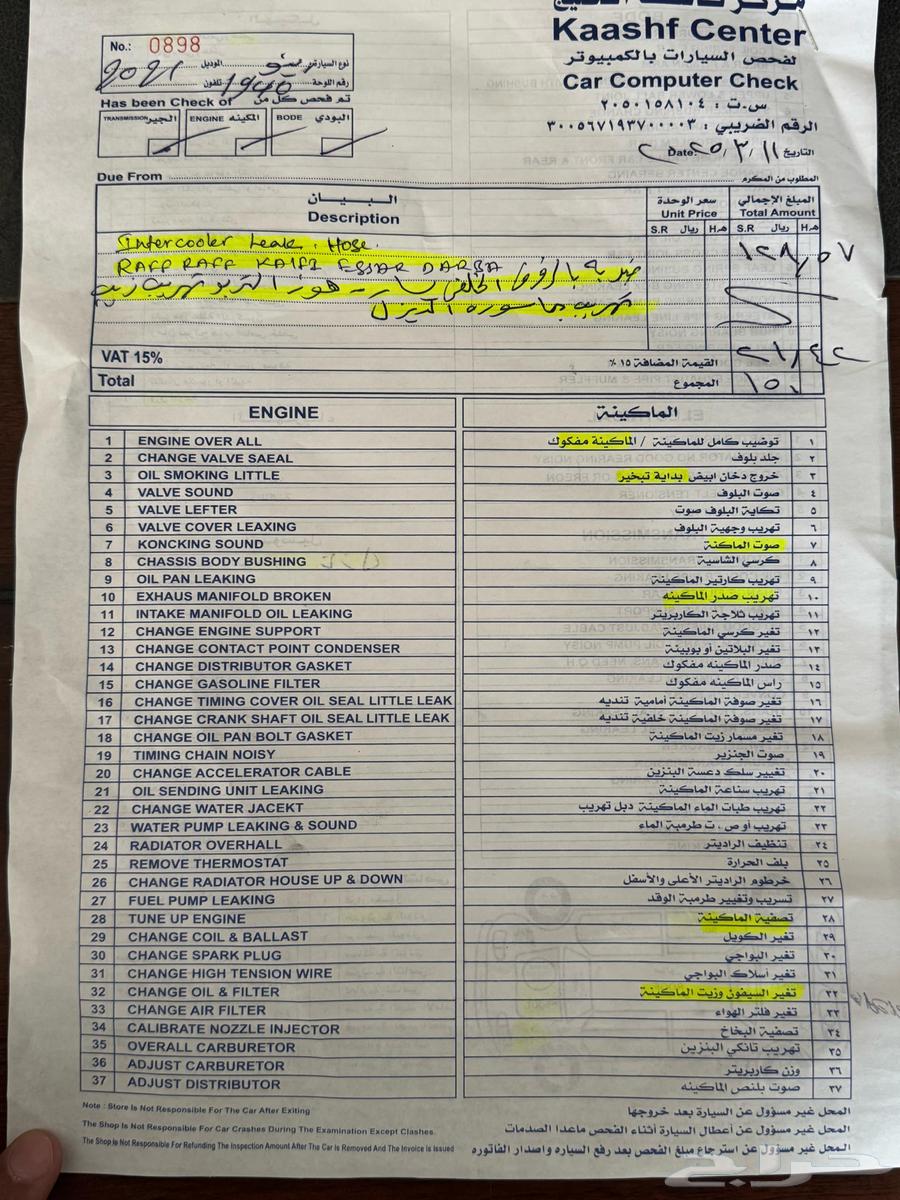 Kaashf Center
لفحص السيارات بالكمبيوتر
Car Computer Check
س.ت : ٢٠٥٠١٥٨١٠٤
الرقم الضريبي : ٣٠٠٥٦٧١٩٣٧٠٠٠٠٣
التاريخ ٢٠٢٥/٣/١١ Date:
No.: 0898
نوع السيارة الموديل 2021
رقم اللوحة تلفون
Has been Check of تم فحص كل من
TRANSMISSION الجير ENGINE المكينه BODE البودي
Due From المطلوب من المكرم
البيان سعر الوحدة المبلغ الإجمالي
Description Unit Price Total Amount
S.R ريال H هـ S.R ريال H هـ
Intercooler Leak . Hose. ١٢٨/٥٧
RAFF RAFF KALFI ESSAR DARBA
ضربه بالرفرف الخلفي يسار - هوز التربو تهريب زيت
تهريب ماسورة الديزل
VAT 15% القيمة المضافة ١٥ ٪ ٢١/٤٢
Total المجموع ١٥٠
ENGINE الماكينة
1 ENGINE OVER ALL توضيب كامل للماكينة / الماكينة مفكوك ١
2 CHANGE VALVE SAEAL جلد بلوف ٢
3 OIL SMOKING LITTLE خروج دخان ابيض بداية تبخير ٣
4 VALVE SOUND صوت البلوف ٤
5 VALVE LEFTER تكاية البلوف صوت ٥
6 VALVE COVER LEAXING تهريب وجهية البلوف ٦
7 KONCKING SOUND صوت الماكنة ٧
8 CHASSIS BODY BUSHING كرسي الشاسية ٨
9 OIL PAN LEAKING تهريب كارتير الماكينة ٩
10 EXHAUS MANIFOLD BROKEN تهريب صدر الماكينه ١٠
11 INTAKE MANIFOLD OIL LEAKING تهريب ثلاجة الكاربريتر ١١
12 CHANGE ENGINE SUPPORT تغير كرسي الماكينة ١٢
13 CHANGE CONTACT POINT CONDENSER تغير البلاتين أو بوبينة ١٣
14 CHANGE DISTRIBUTOR GASKET صدر الماكينه مفكوك ١٤
15 CHANGE GASOLINE FILTER راس الماكينه مفكوك ١٥
16 CHANGE TIMING COVER OIL SEAL LITTLE LEAK تغير صوفة الماكينة أمامية تنديه ١٦
17 CHANGE CRANK SHAFT OIL SEAL LITTLE LEAK تغير صوفة الماكينة خلفية تنديه ١٧
18 CHANGE OIL PAN BOLT GASKET تغير مسمار زيت الماكينة ١٨
19 TIMING CHAIN NOISY صوت الجنزير ١٩
20 CHANGE ACCELERATOR CABLE تغيير سلك دعسة البنزين ٢٠
21 OIL SENDING UNIT LEAKING تهريب سناعة الماكينة ٢١
22 CHANGE WATER JACEKT تهريب طبات الماء الماكينة دبل تهريب ٢٢
23 WATER PUMP LEAKING & SOUND تهريب أو ص . ت طرمبة الماء ٢٣
24 RADIATOR OVERHALL تنظيف الراديتر ٢٤
25 REMOVE THERMOSTAT بلف الحرارة ٢٥
26 CHANGE RADIATOR HOUSE UP & DOWN خرطوم الراديتر الأعلى والأسفل ٢٦
27 FUEL PUMP LEAKING تسريب وتغيير طرمبة الوقد ٢٧
28 TUNE UP ENGINE تصفية الماكينة ٢٨
29 CHANGE COIL & BALLAST تغير الكويل ٢٩
30 CHANGE SPARK PLUG تغير البواجي ٣٠
31 CHANGE HIGH TENSION WIRE تغير أسلاك البواجي ٣١
32 CHANGE OIL & FILTER تغير السيفون وزيت الماكينة ٣٢
33 CHANGE AIR FILTER تغير فلتر الهواء ٣٣
34 CALIBRATE NOZZLE INJECTOR تصفية البخاخ ٣٤
35 OVERALL CARBURETOR تهريب تانكي البنزين ٣٥
36 ADJUST CARBURETOR وزن كاربريتر ٣٦
37 ADJUST DISTRIBUTOR صوت بلنص الماكينه ٣٧
Note : Store Is Not Responsible For The Car After Exiting المحل غير مسؤول عن السيارة بعد خروجها
The Shop Is Not Responsible For Car Crashes During The Examination Except Clashes. المحل غير مسؤول عن أعطال السيارة أثناء الفحص ماعدا الصدمات
The Shop Is Not Responsible For Refunding The Inspection Amount After The Car Is Removed And The Invoice Is Issued المحل غير مسؤول عن استرجاع مبلغ الفحص بعد رفع السياره واصدار الفاتوره
حراج